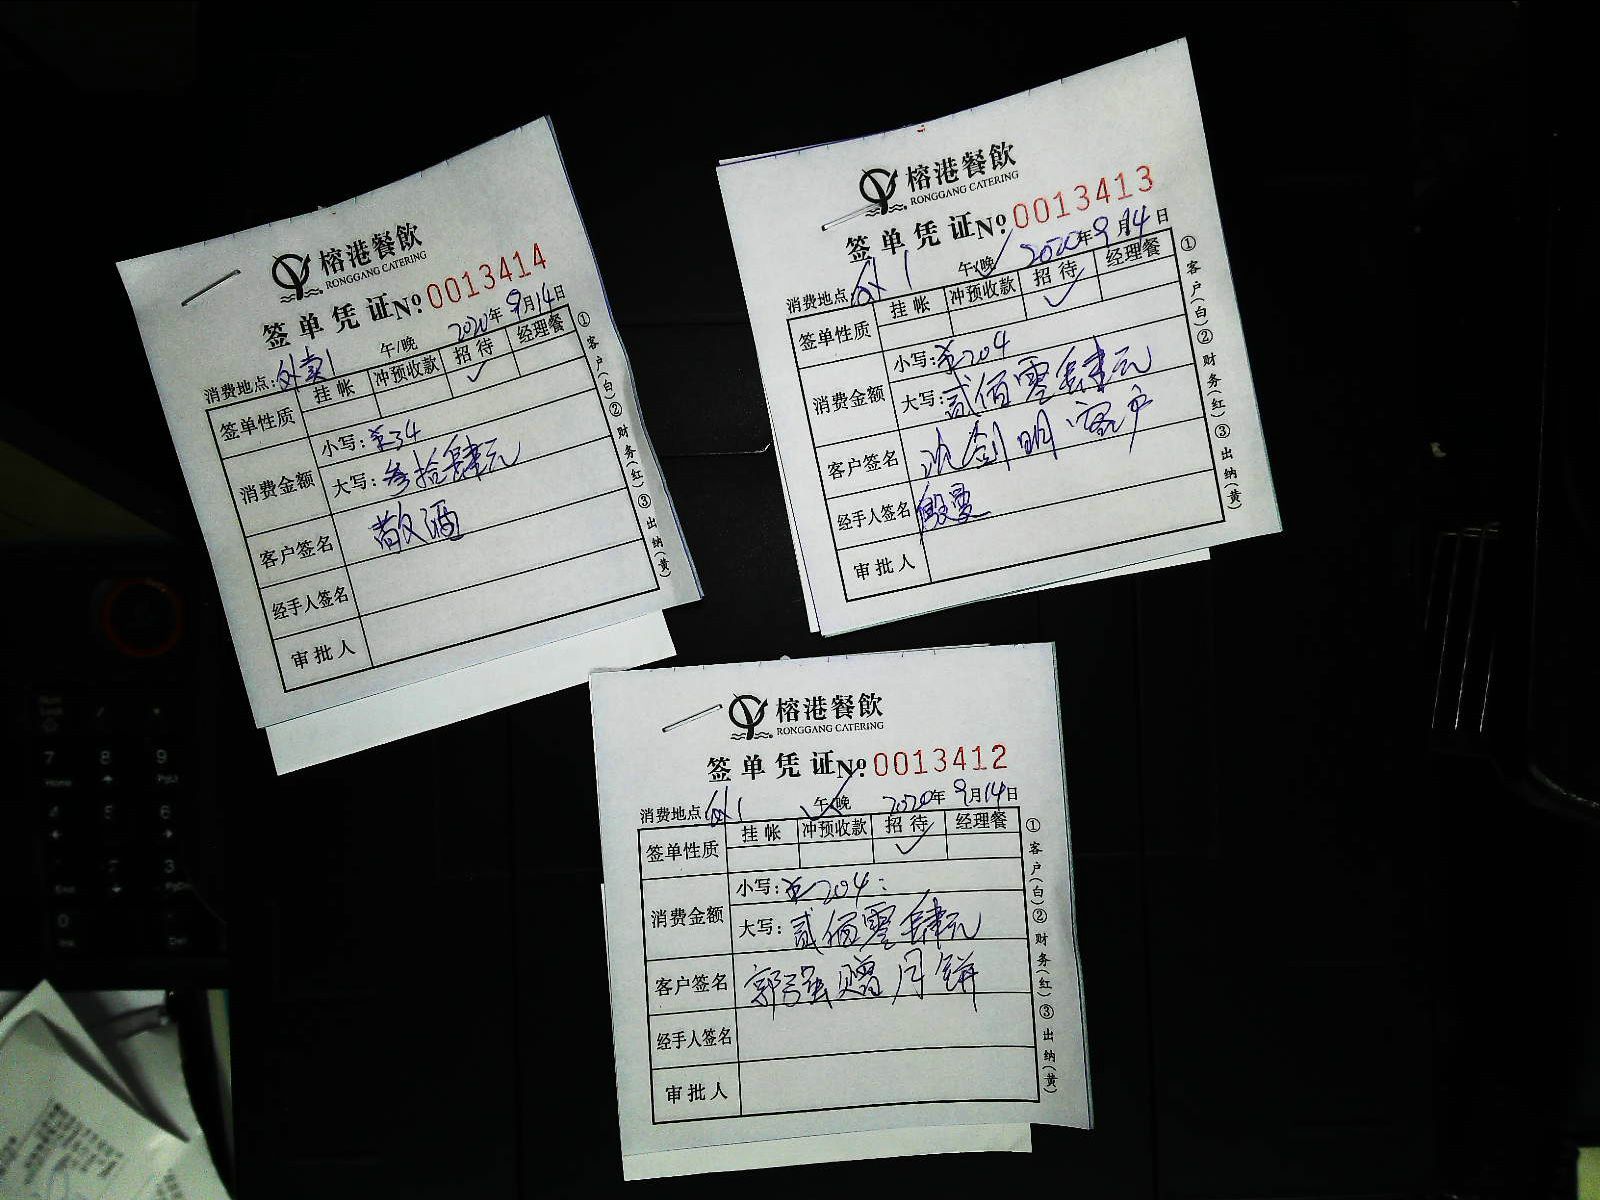 榕港餐飲
RONGGANG CATERING
签单凭证№0013414
午/晚 2020年9月14日
消费地点:外卖1
签单性质 挂帐 冲预收款 招待 经理餐
✓
消费金额 小写:¥34
大写:叁拾肆元
客户签名 敬酒
经手人签名
审批人
①客户(白)②财务(红)③出纳(黄)
榕港餐飲
RONGGANG CATERING
签单凭证№0013413
午/晚 2020年9月14日
消费地点:外1
签单性质 挂帐 冲预收款 招待 经理餐
✓
消费金额 小写:¥204
大写:贰佰零肆元
客户签名 沈剑明客户
经手人签名 殷曼
审批人
①客户(白)②财务(红)③出纳(黄)
榕港餐飲
RONGGANG CATERING
签单凭证№0013412
消费地点:外1 午/晚 2020年9月14日
签单性质 挂帐 冲预收款 招待 经理餐
✓
消费金额 小写:¥204
大写:贰佰零肆元
客户签名 郭强赠月饼
经手人签名
审批人
①客户(白)②财务(红)③出纳(黄)
7 8 9
Home PgU
4 5 6
3
0